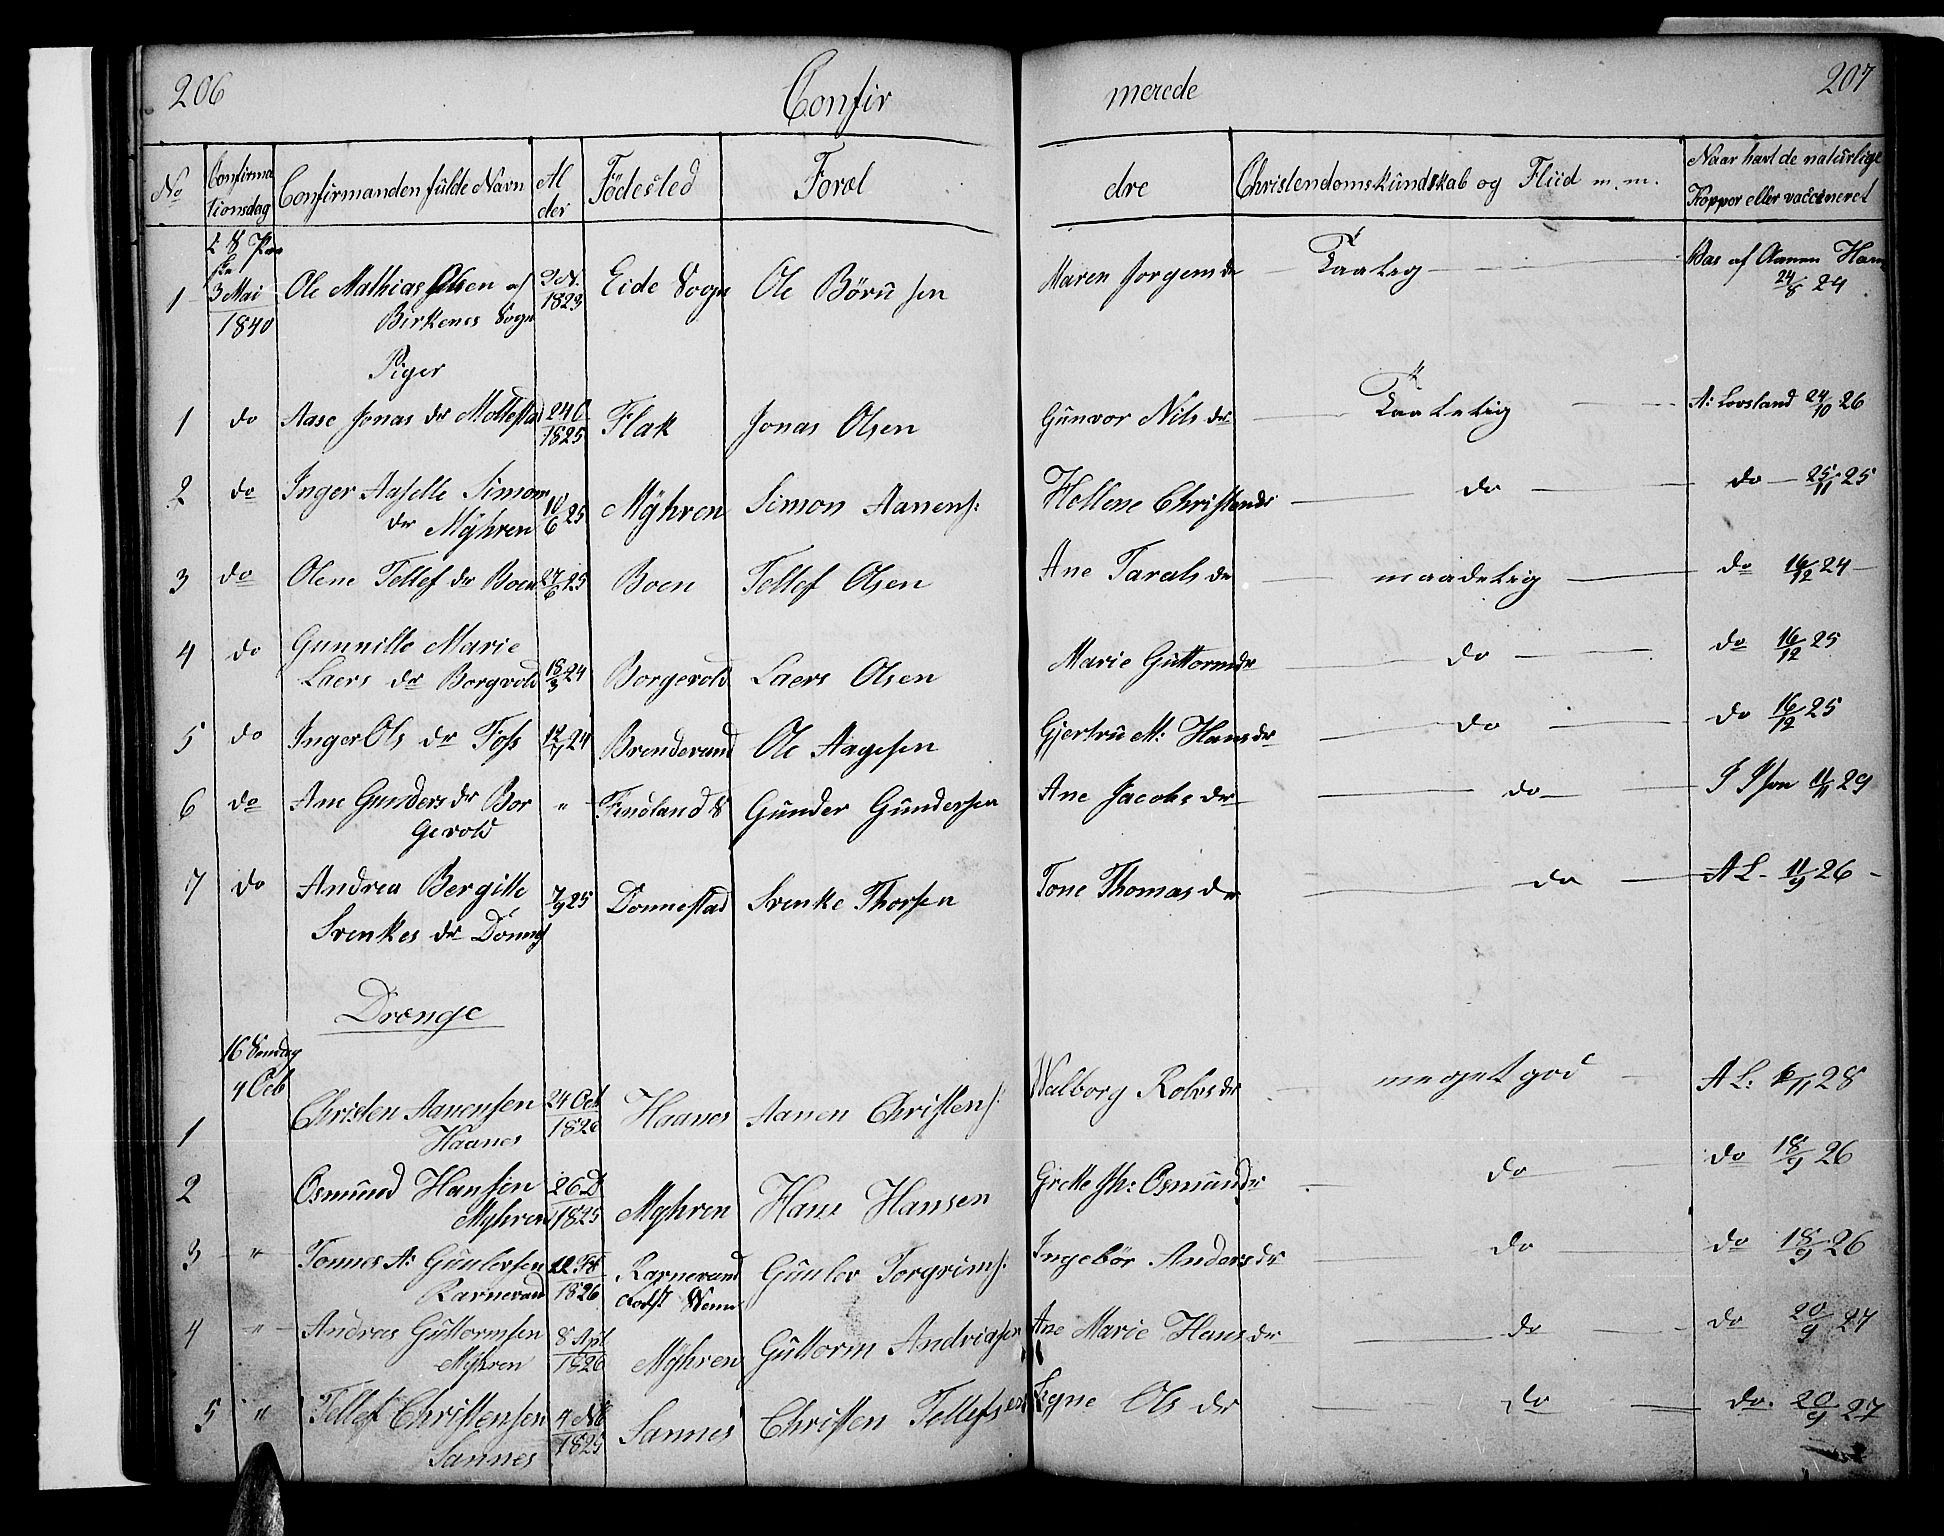 206 Confir merede 207
No Confirma tionsdag Confirmanden fulde Navn Al der Födested Foræl dre Christendomskundskab og Fliid m. m. Naar havt de naturlige Kopper eller vaccineret
3 Mai 1840
1 Ole Mathias Olsen af Birkenes Sogn 1823 Eide Sogn Ole Börufsen Maren Jorgensdr Vac af Aanen Hans 24/8 24
Piger
1 do Aase Jonas dr Mollestad 24 O 1825 Flak Jonas Olsen Gunvor Nils dr A: Lovsland 24/10 26
2 do Inger Aaselle Simons dr Mÿhren 10/6 25 Mÿhren Simon Aanens: Hellene Christensdr do do 25/11 25
3 do Olene Tellef dr Boen 27/6 25 Boen Tellef Olsen Ane Tarals dr maadelig do 16/12 24
4 do Gunnille Marie Laers dr Borgvold 18/3 24 Borgevold Laers Olsen Marie Guttormdr do do 16/12 25
5 do Inger Ols dr Foss 24 Brenderand Ole Aagesen Gjertru M: Hansdr do do 16/12 25
6 do Ane Gunders dr Bor gevold " Findland S Gunder Gundersen Ane Jacobs dr do 29
7 do Andrea Bergitte Svenkes dr Dønnes 7/9 25 Donnestad Svenke Thorsen Tone Thomas dr do A L 11/9 26
Drenge
16 Søndag 4 Octb
1 Christen Aanensen Haanes 24 Oct 1826 Haanes Aanen Christens: Walborg Robrs dr meget god A L: 28
2 Osmund Hansen Mÿhren 26 D 1825 Mÿhren Hans Hansen Grette Osmundsdr do do 18/9 26
3 " Tonnes A: Gunlevsen Rarnevand 12 Feb 1826 Rarnevand Gunlev Torgrims: Ingebör Anders dr do do 18/9 26
4 " Andreas Guttormsen Mÿhren 8 Apl 1826 Mÿhren Guttorm Andriasen Ane Marie Hans dr do do 20/9 27
5 " Tellef Christensen Sannes 4 No 1825 Sannes Christen Tellefsen Segne Ols dr do do. 20/9 27